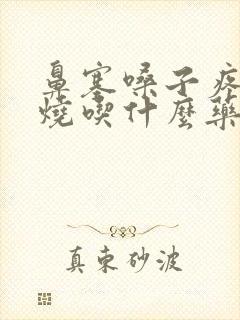 鼻塞嗓子疼
燒喫什麼藥
真柬砂波